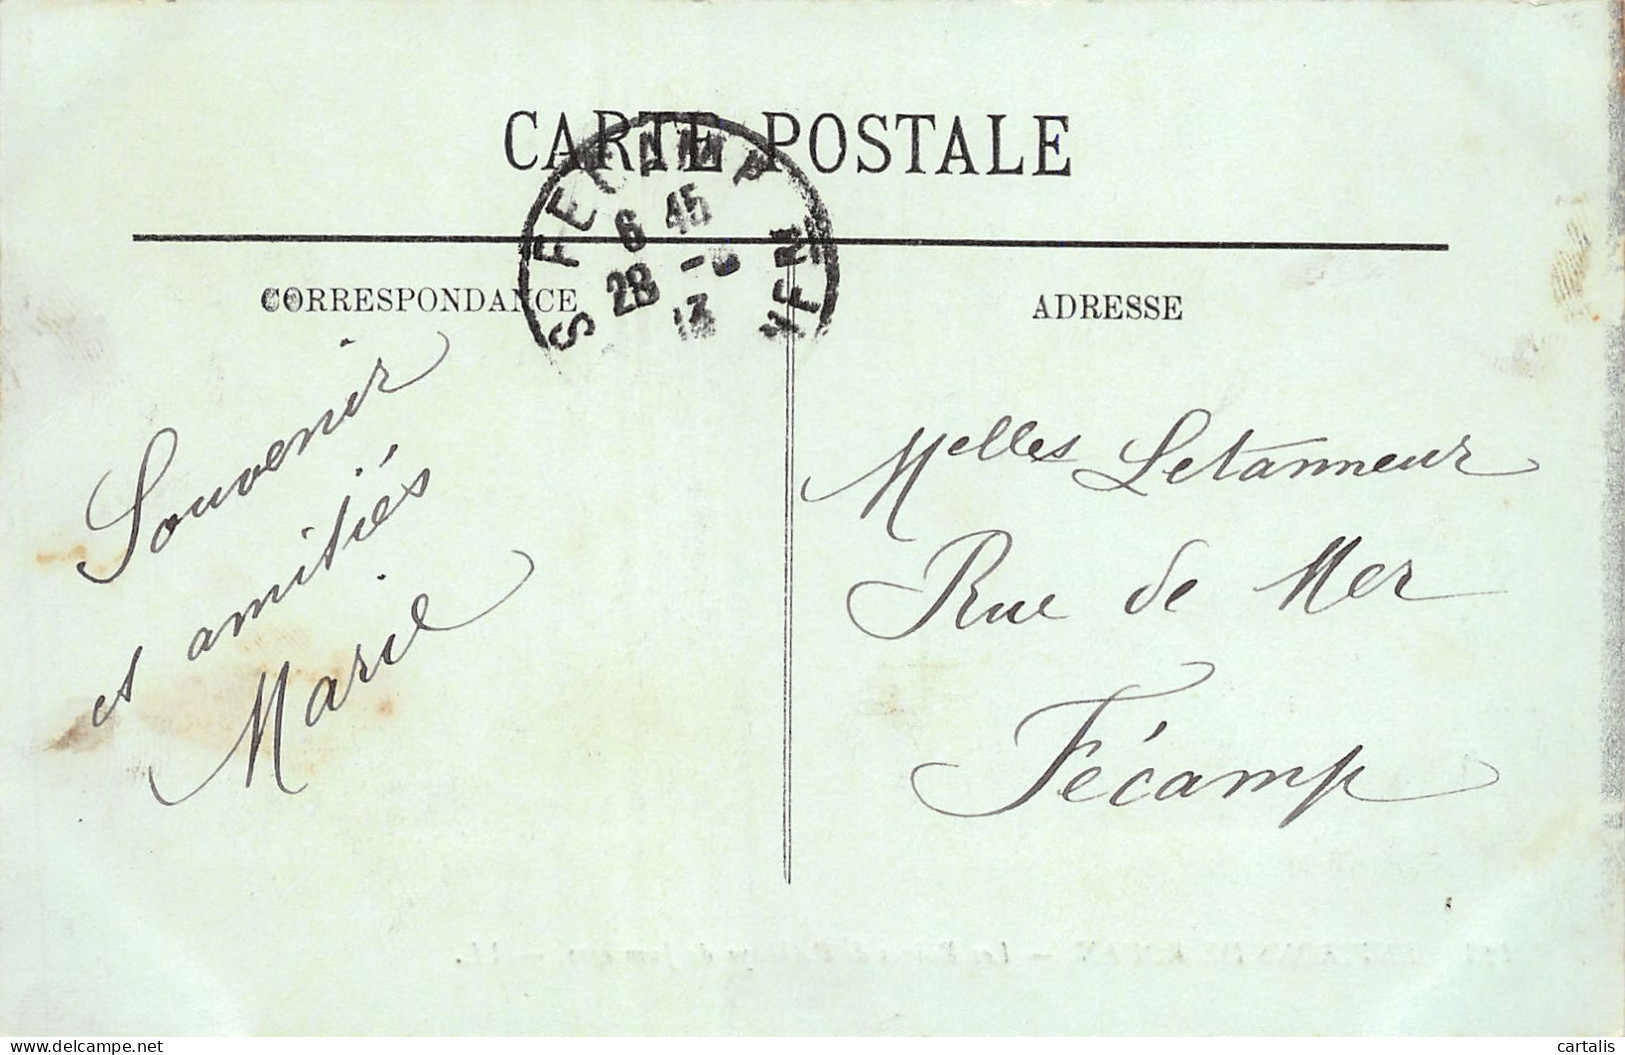 CARTE POSTALE
FECAMP
6 45
28
13
CORRESPONDANCE
ADRESSE
Souvenir
et amitiés
Marie
Melles Letanneur
Rue de Mer
Fécamp
www.delcampe.net
cartalis